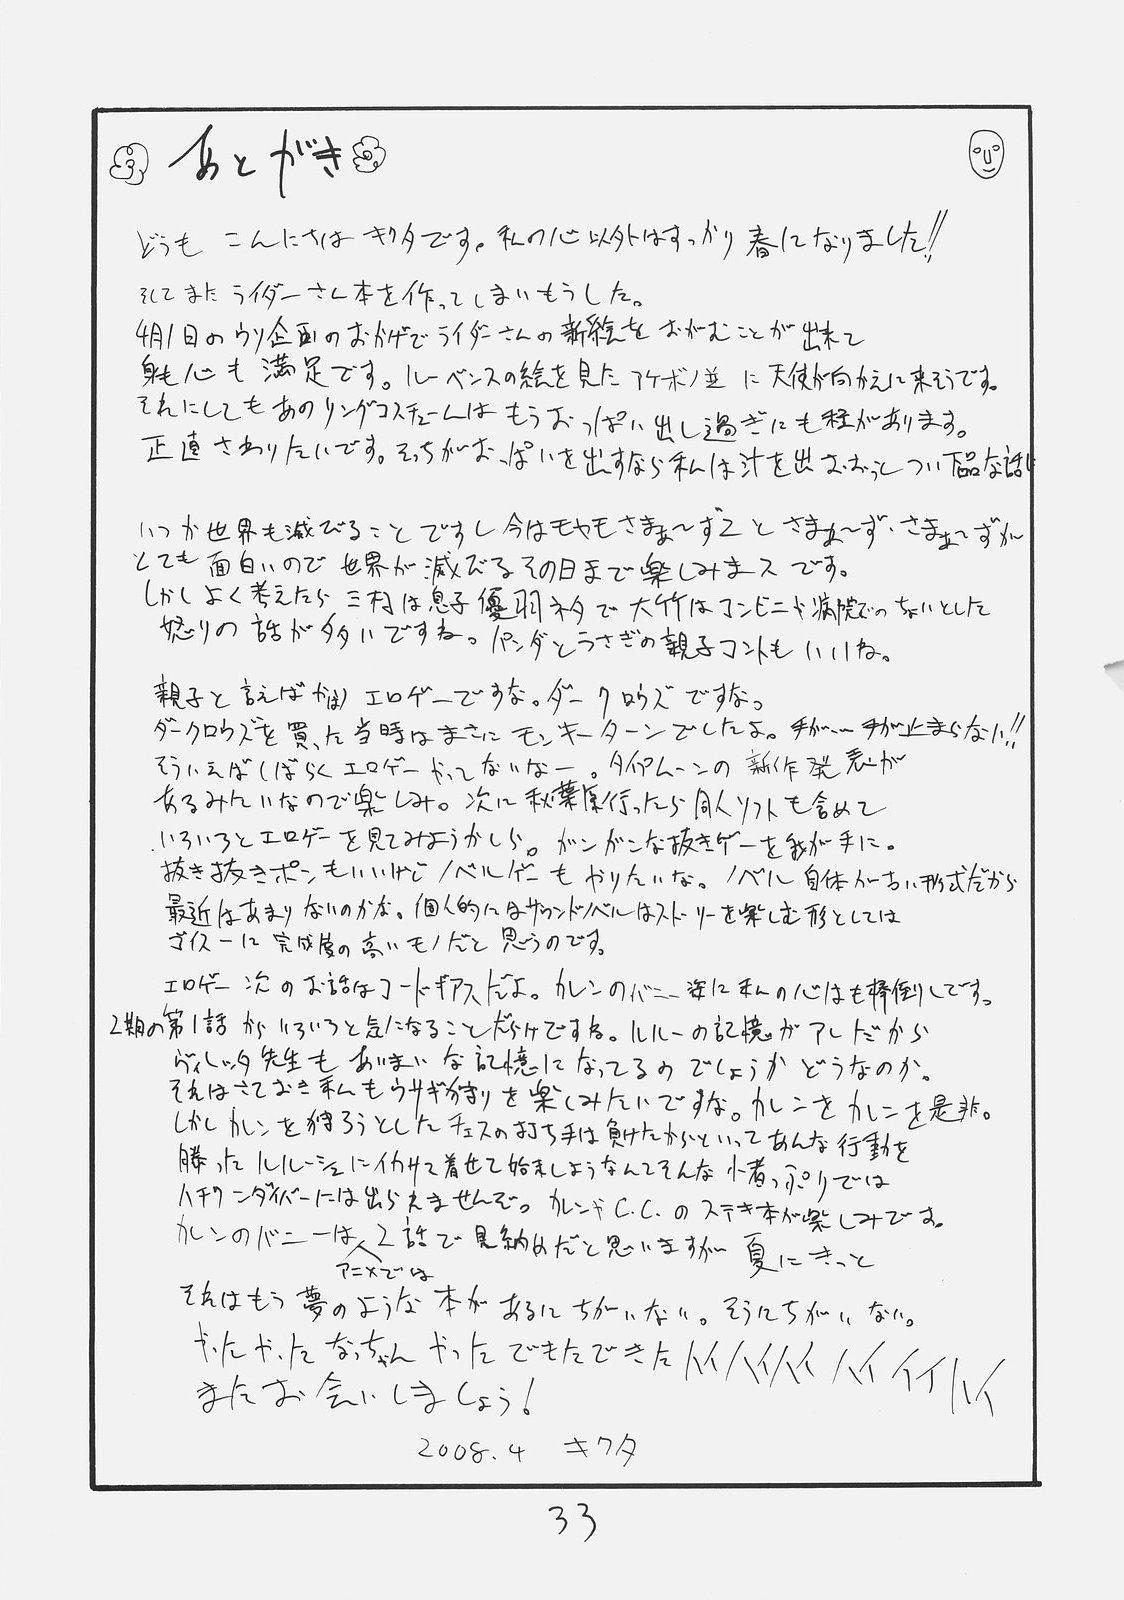 あとがき
どうも こんにちは キクタです。私の心以外はすっかり春になりました!!
そしてまた ライダーさん本を作ってしまいもうした。
4月1日のウソ企画のおかげでライダーさんの新絵をおがむことが出来て
身も心も満足です。ルーベンスの絵を見たアケボノ並に天使が向かえに来そうです。
それにしてもあのリングコスチュームはもうおっぱい出し過ぎにも程があります。
正直さわりたいです。そっちがおっぱいを出すなら私は汁を出おおっとつい下品な話に
いつか世界も滅びることですし今はモヤモヤさまぁ〜ず2とさまぁ〜ず・さまぁ〜ずが
とても面白いので世界が滅びるその日まで楽しみまスです。
しかしよく考えたら三村は息子優羽ネタで大竹はコンビニや病院でのちょいとした
怒りの話が多いですね。パンダとうさぎの親子コントもいいね。
親子と言えばやはりエロゲーですな。ダークロウズですな。
ダークロウズを買った当時はまさにモンキーターンでしたよ。手が…手が止まらない!!
そういえばしばらくエロゲーやってないなー。タイプムーンの新作発表が
あるみたいなので楽しみ。次に秋葉原行ったら同人ソフトも含めて
いろいろとエロゲーを見てみようかしら。ガンガンな抜きゲーを我が手に。
抜き抜きポンもいいけどノベルゲーもやりたいな。ノベル自体が古い形式だから
最近はあまりないのかな。個人的にはサウンドノベルはストーリーを楽しむ形としては
ゴイスーに完成度の高いモノだと思うのです。
エロゲー次のお話はコードギアスだよ。カレンのバニー姿に私の心はも棒倒しです。
2期の第1話からいろいろと気になることだらけですね。ルルーの記憶がアレだから
ヴィレッタ先生もあいまいな記憶になってるのでしょうかどうなのか。
それはさておき私もウサギ狩りを楽しみたいですな。カレンをカレンを是非。
しかしカレンを狩ろうとしたチェスの打ち手は負けたからといってあんな行動を
勝ったルルーシュにイカサマ着せて始末しようなんてそんな小者っぷりでは
ハチワンダイバーには出られませんぞ。カレンやC.C.のステキ本が楽しみです。
カレンのバニーはアニメでは2話で見納めだと思いますが夏にきっと
それはもう夢のような本があるにちがいない。そうにちがいない。
やったやったなっちゃんやったでもたできたハイハイハイハイイイハイ
またお会いしましょう!
2008.4 キクタ
33